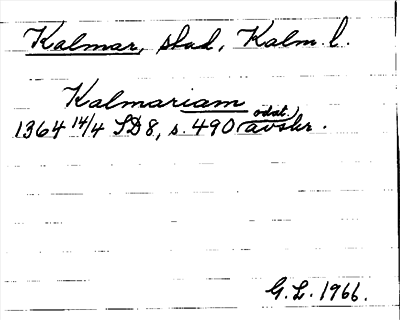 Kalmar, stad, Kalm. l.
Kalmariam
1364 14/4 SD 8, s. 490 (odat. avskr.
G. L. 1966.